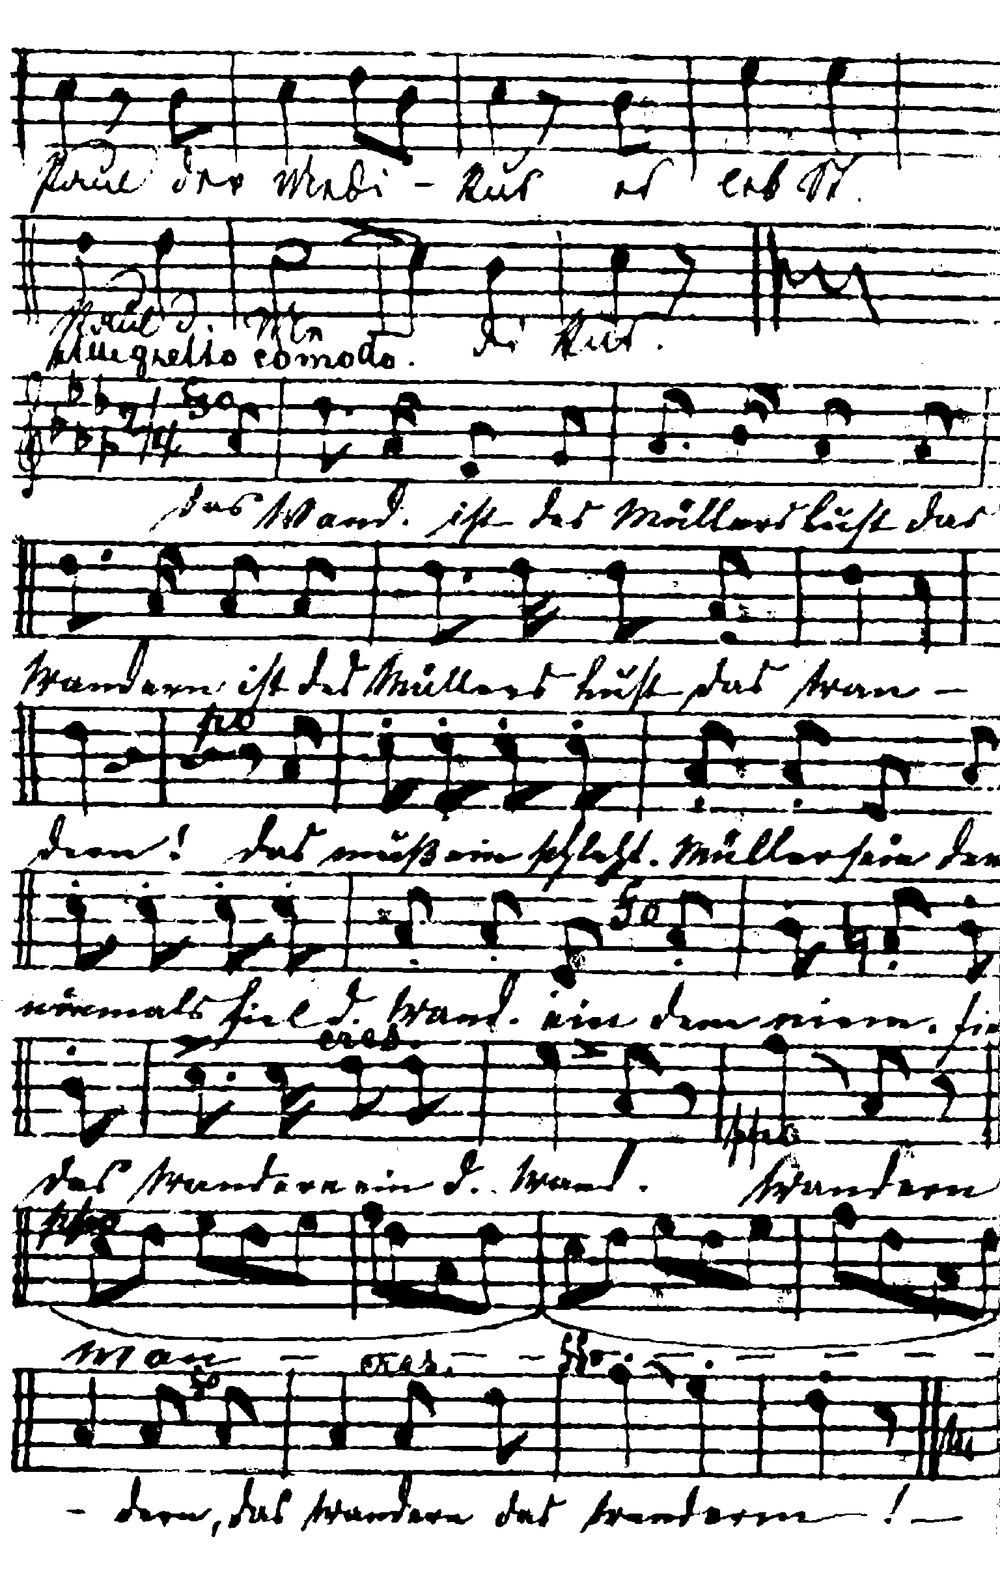 Paul der Medi - kus er leb St.
Paul d. Me di kus.
Allegretto comodo.
2/4 fzo
das Wand. ist des Müllers Lust das
Wandern ist des Müllers Lust das Wan -
po
dern! das muß ein schlecht. Müller sein dem
fo
niemals fiel d. Wand. ein dem niem. fie
cres.
ppo
das Wandern ein d. Wand. Wandern
ppo
Wan - cres. - - ffo - - - -
fo
- dern, das Wandern das Wandern - ! -